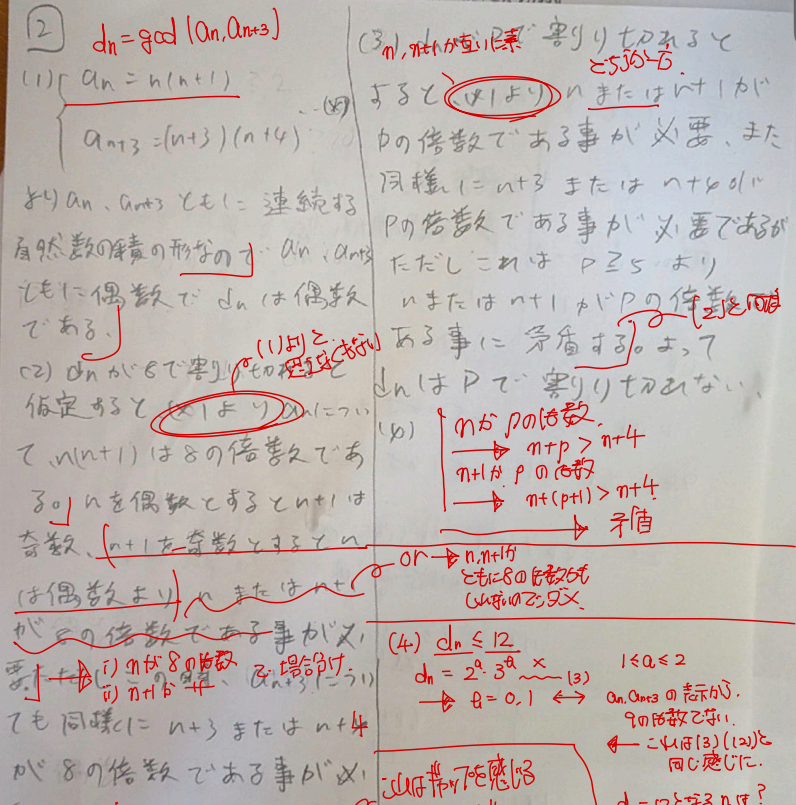 2
dn = gcd(an, an+3)
(1) an = n(n+1)
an+3 = (n+3)(n+4) …(※)
より an、an+3 ともに 連続する
自然数の積の形なので an、an+3
ともに偶数で dnは偶数
である。
(1)よりと
(2) dnが8で割り切れると
仮定すると (※1より) anについ
て、n(n+1)は8の倍数であ
る。nを偶数とするとn+1は
奇数、(n+1を奇数とするとn
は偶数より) n または n+1
が8の倍数である事が必
要
i) nが8の倍数
ii) n+1が 〃
で場合分け
an+3につい
ても同様に n+3 または n+4
が8の倍数である事が必
n, n+1が互いに素
(3) Pで割り切れると
どちらか一方
すると、※1より n または n+1が
Pの倍数である事が必要、また
同様に n+3 または n+4が
Pの倍数である事が必要であるが
ただし これは P≧5 より
n または n+1 が Pの倍数で
(2)と同様
ある事に矛盾する。よって
dnは Pで割り切れない。
(※)
nが Pの倍数
→ n+p > n+4
n+1が P の倍数
→ n+(p+1) > n+4
→ 矛盾
or → n, n+1が
ともに8の倍数かも
しれないのでダメ
(4) dn ≤ 12
dn = 2^a・3^b × (3)
1≤a≤2
→ b=0,1 ↔ an, an+3 の表示から
9の倍数でない
← これは(3)(2)と
同じ感じに
これはギャップを感じる
d = 12となるnは?